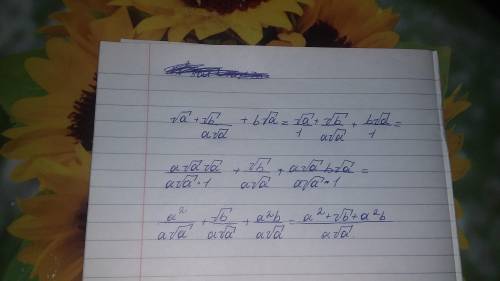 √a + √b/a√a + b√a = √a/1 + √b/a√a + b√a/1 =
a√a√a/a√a·1 + √b/a√a + a√a b√a/a√a·1 =
a²/a√a + √b/a√a + a²b/a√a = a²+√b+a²b/a√a